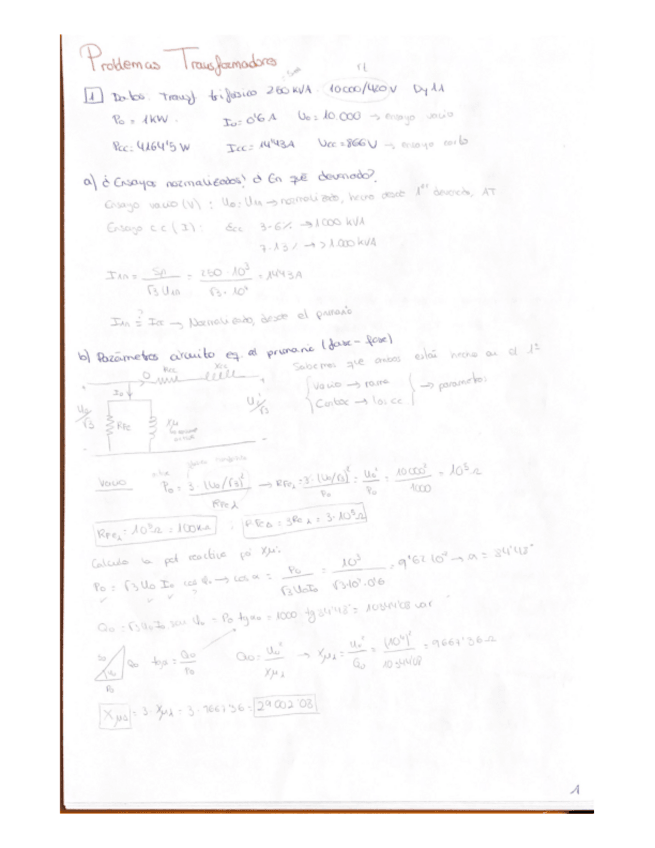 Problemas Transformadores
1 Datos. Transf trifásico 250 kVA 10000/400 V Dy11
Po = 1kW. Io = 0'6 A Uo = 10.000 → ensayo vacio
Pcc = 4164'5 W Icc = 14'43A Ucc = 866V → ensayo corto
a) ¿Ensayos normalizados? ¿En qué devanado?
Ensayo vacio (V): Uo = U1n → normalizado, hecho desde 1er devanado, AT
Ensayo c.c (I): Ecc 3-6% → 1000 kVA
7-13% → >1000 kVA
I1n = Sn / √3 U1n = 250·10³ / √3·10⁴ = 14'43A
I1n =? Icc → Normalizado, desde el primario
b) Parámetros circuito eq. al primario (fase-fase)
Sabemos que ambos están hecho en el 1º
Vacio → rama
Cortoc → los cc
→ parametros
Rcc Xcc
Io
Uo/√3 RFe Xμ U'/√3
Vacio Po = 3·(Uo/√3)² / RFeλ → RFeλ = 3·(Uo/√3)² / Po = Uo² / Po = 10000² / 1000 = 10⁵Ω
RFeλ = 10⁵Ω = 100kΩ ; RFeΔ = 3Reλ = 3·10⁵Ω
Calculo la pot reactiva por Xμ:
Po = √3 Uo Io cos φo → cos a = Po / √3UoIo = 10³ / √3·10⁴·0'6 = 9'62·10⁻² → a = 84'48°
Qo = √3 Uo Io sen φo = Po tg φo = 1000 · tg 84'48° = 10344'08 var
So Qo Po tg a = Qo / Po Qo = Uo² / Xμλ → Xμλ = Uo² / Qo = (10⁴)² / 10344'08 = 9667'36 Ω
XμΔ = 3·Xμλ = 3·9667'36 = 29002'08
1